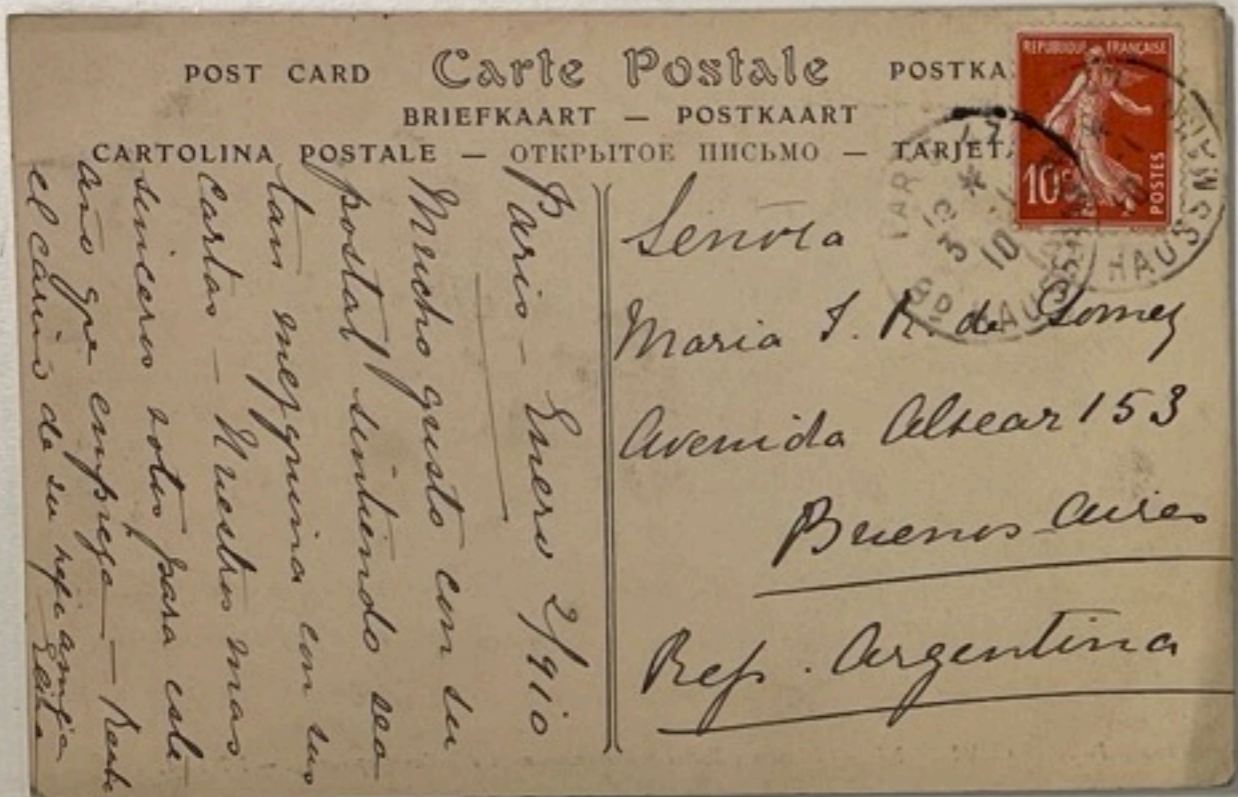 POST CARD Carte Postale POSTKA
BRIEFKAART — POSTKAART
CARTOLINA POSTALE — ОТКРЫТОЕ ПИСЬМО — TARJETA
REPUBLIQUE FRANÇAISE
10c
POSTES
3 10
Bd HAUSSMANN
Paris - Enero 2/910
Mucho gusto con su
postal sintiendo sea
tan mezquina con sus
cartas - Nuestros mas
sinceros votos para este
año que empieza - Recibe
el cariño de su
Señora
Maria I. R. de Gomez
Avenida Alvear 153
Buenos Aires
Rep. Argentina